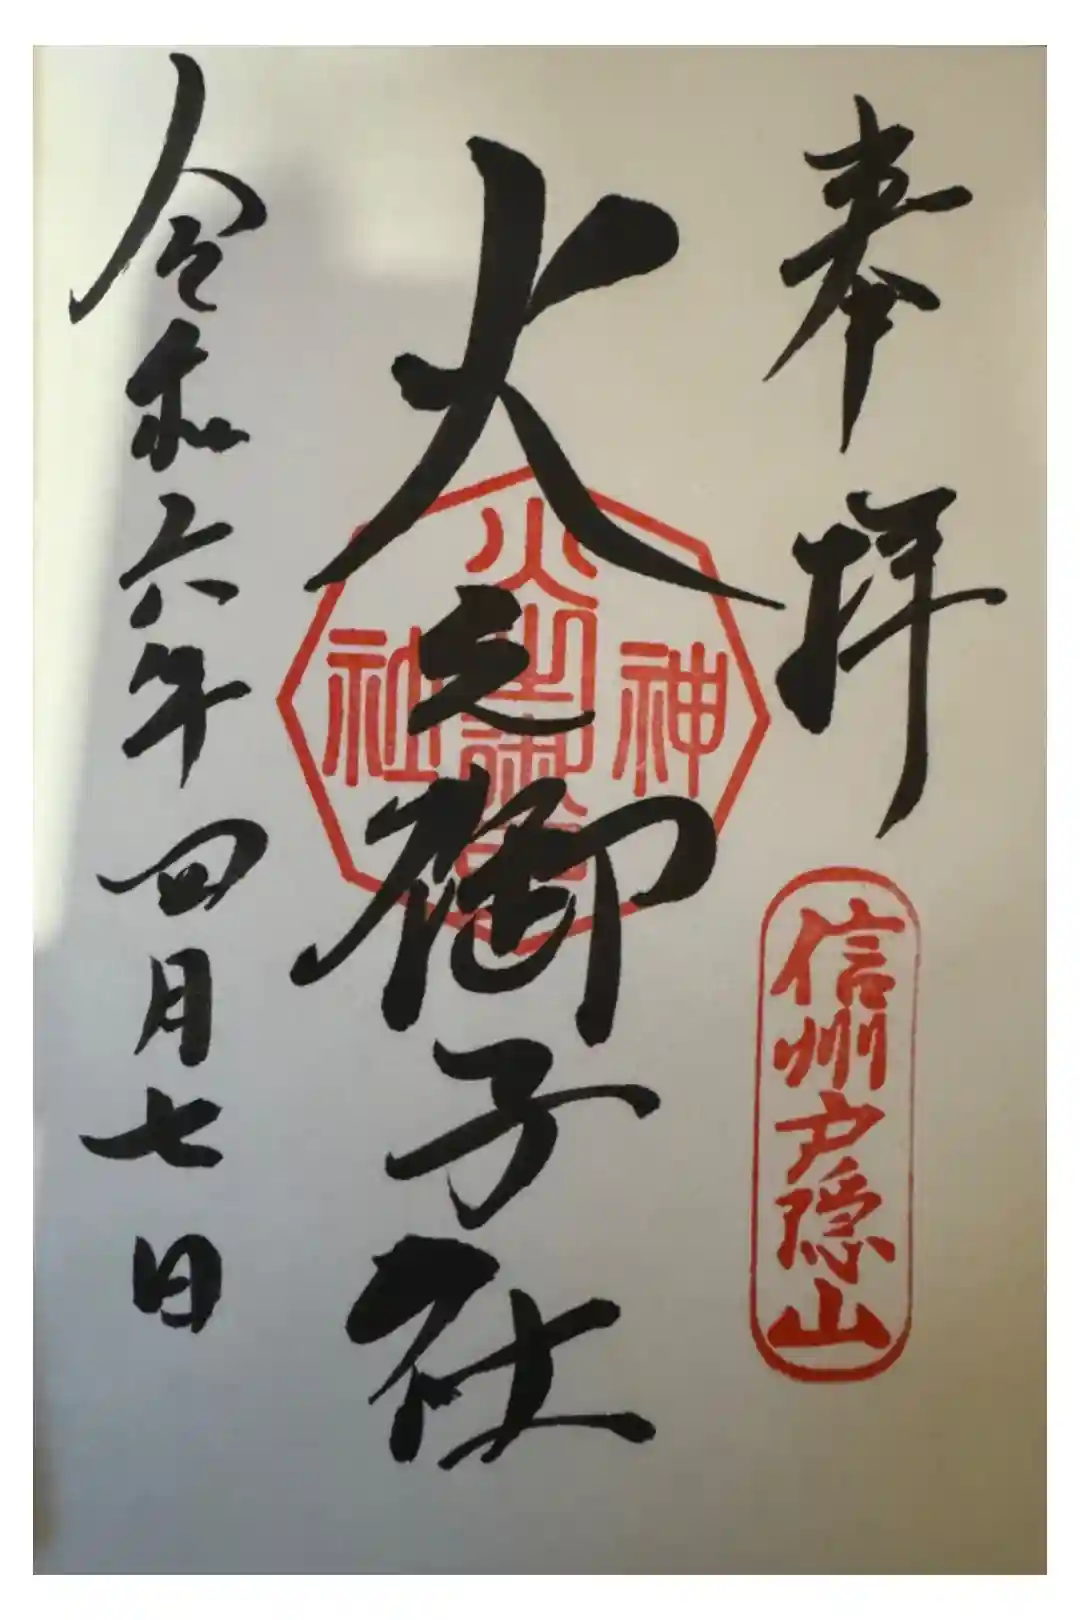 奉拝
信州戸隠山
火之御子社
神
火之御子
社
令和六年四月七日